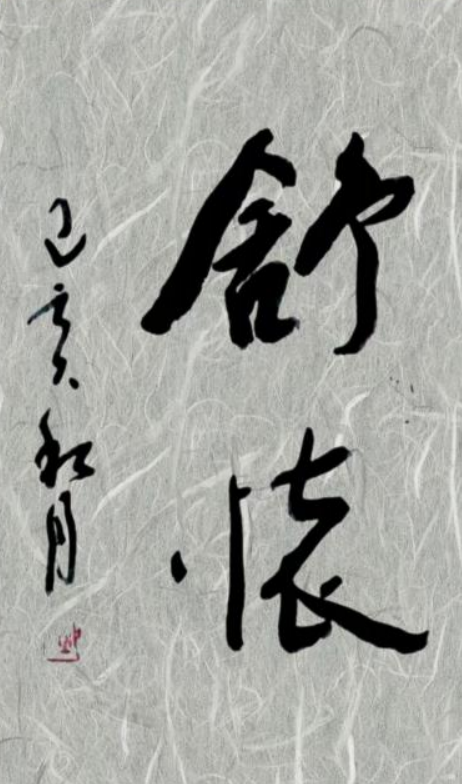 舒懷
己亥秋月